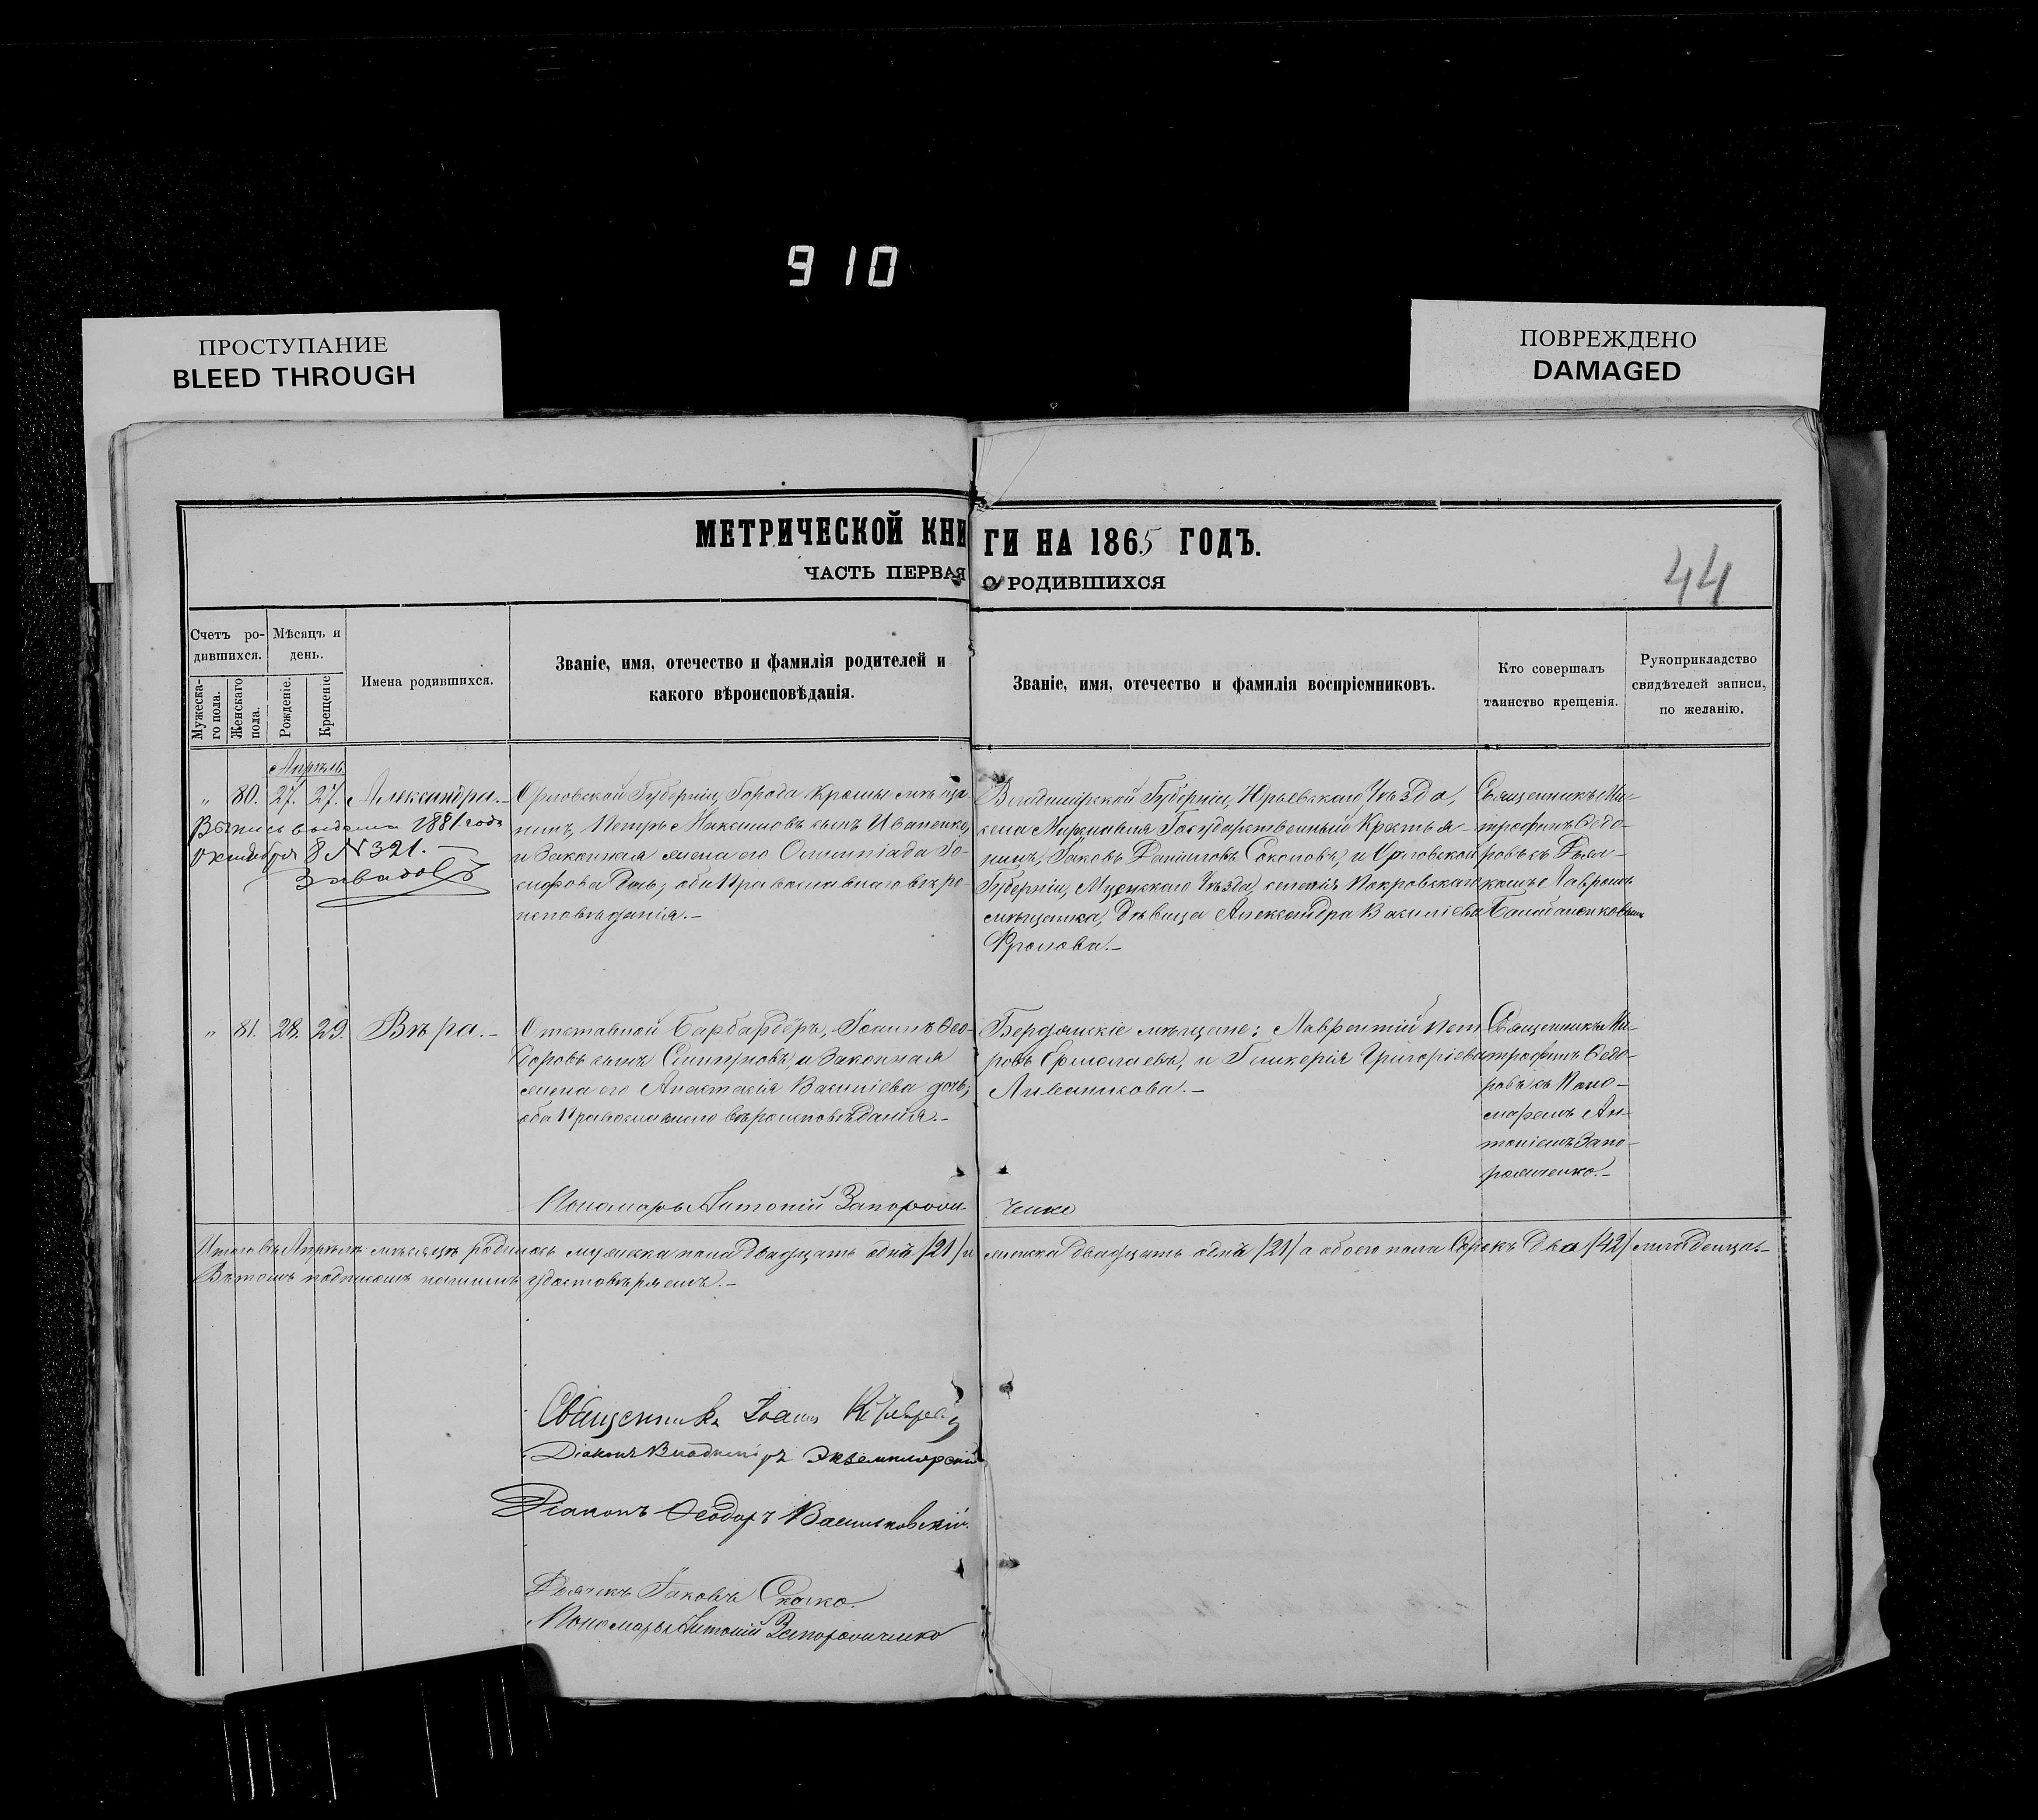 910
ПРОСТУПАНИЕ
BLEED THROUGH
ПОВРЕЖДЕНО
DAMAGED
МЕТРИЧЕСКОЙ КНИГИ НА 1865 ГОДЪ.
ЧАСТЬ ПЕРВАЯ О РОДИВШИХСЯ
44
Счетъ ро-
дившихся.
Мужеска-
го пола.
Женскаго
пола.
Мѣсяцъ и
день.
Рожденіе.
Крещеніе
Имена родившихся.
Званіе, имя, отечество и фамилія родителей и
какого вѣроисповѣданія.
Званіе, имя, отечество и фамилія воспріемниковъ.
Кто совершалъ
таинство крещенія.
Рукоприкладство
свидѣтелей записи,
по желанію.
Апрѣль
" 80. 27. 27. Александра.-
Выпись выдана 1881 года
Октября 8 № 321. -
Орловской Губерніи, Города Кромы мѣща-
нинъ, Петръ Максимовъ сынъ Иваненко,
и Законная жена его Олимпіада Іо-
сифова дочь; оба Православнаго вѣро-
исповѣданія.-
Владимірской Губерніи, Юрьевскаго Уѣзда,
села Государственный Крестья-
нинъ, Іаковъ Даніиловъ Соколовъ, и Орловской
Губерніи, Уѣзда, селенія Покровскаго
мѣщанка, дѣвица Александра Василіева
Фролова.-
Священникъ Ми-
трофанъ Ѳедо-
ровъ съ Дьяч-
комъ Лавромъ
" 81. 28. 29. Вѣра.-
Отставной Барбардёръ, Іоаннъ Ѳео-
доровъ сынъ и Законная
жена его Анастасія Василіева дочь;
оба Православнаго вѣроисповѣданія.-
Бердянскіе мѣщане: Лаврентій Пет-
ровъ Ермолаевъ, и Гликерія Григоріева
Священникъ Ми-
трофанъ Ѳедо-
ровъ съ Поно-
маремъ Ан-
тоніемъ Запо-
рожченко.-
Пономарь Антоній Запорож ченко
Итого въ Апрѣлѣ мѣсяцѣ родилось мужеска пола двадцать одинъ /21/ и женска двадцать одинъ /21/ а обоего пола Сорокъ два /42/ младенца.-
Въ томъ подписомъ нашимъ удостовѣряемъ.-
Священникъ Іоаннъ
Діаконъ Владиміръ Экземплярскій
Діаконъ Ѳеодоръ Васильковскій.
Дьячекъ Іаковъ
Пономарь Антоній Запорожченко